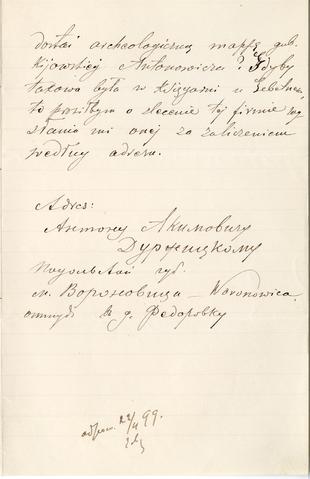 dostać archeologiczną mappę gub.
Kijowskiej Antonowicza? Gdyby
takowa była w księgarni u Gebethnera,
to prosiłbym o zlecenie tej firmie wy
słania mi onej za zaliczeniem
według adresu.
Adres:
Антону Акимовичу
Дуржицкому
Подольской губ.
м. Вороновица – Woronowica
оттуда в д. Федоровку
odpow. 99.